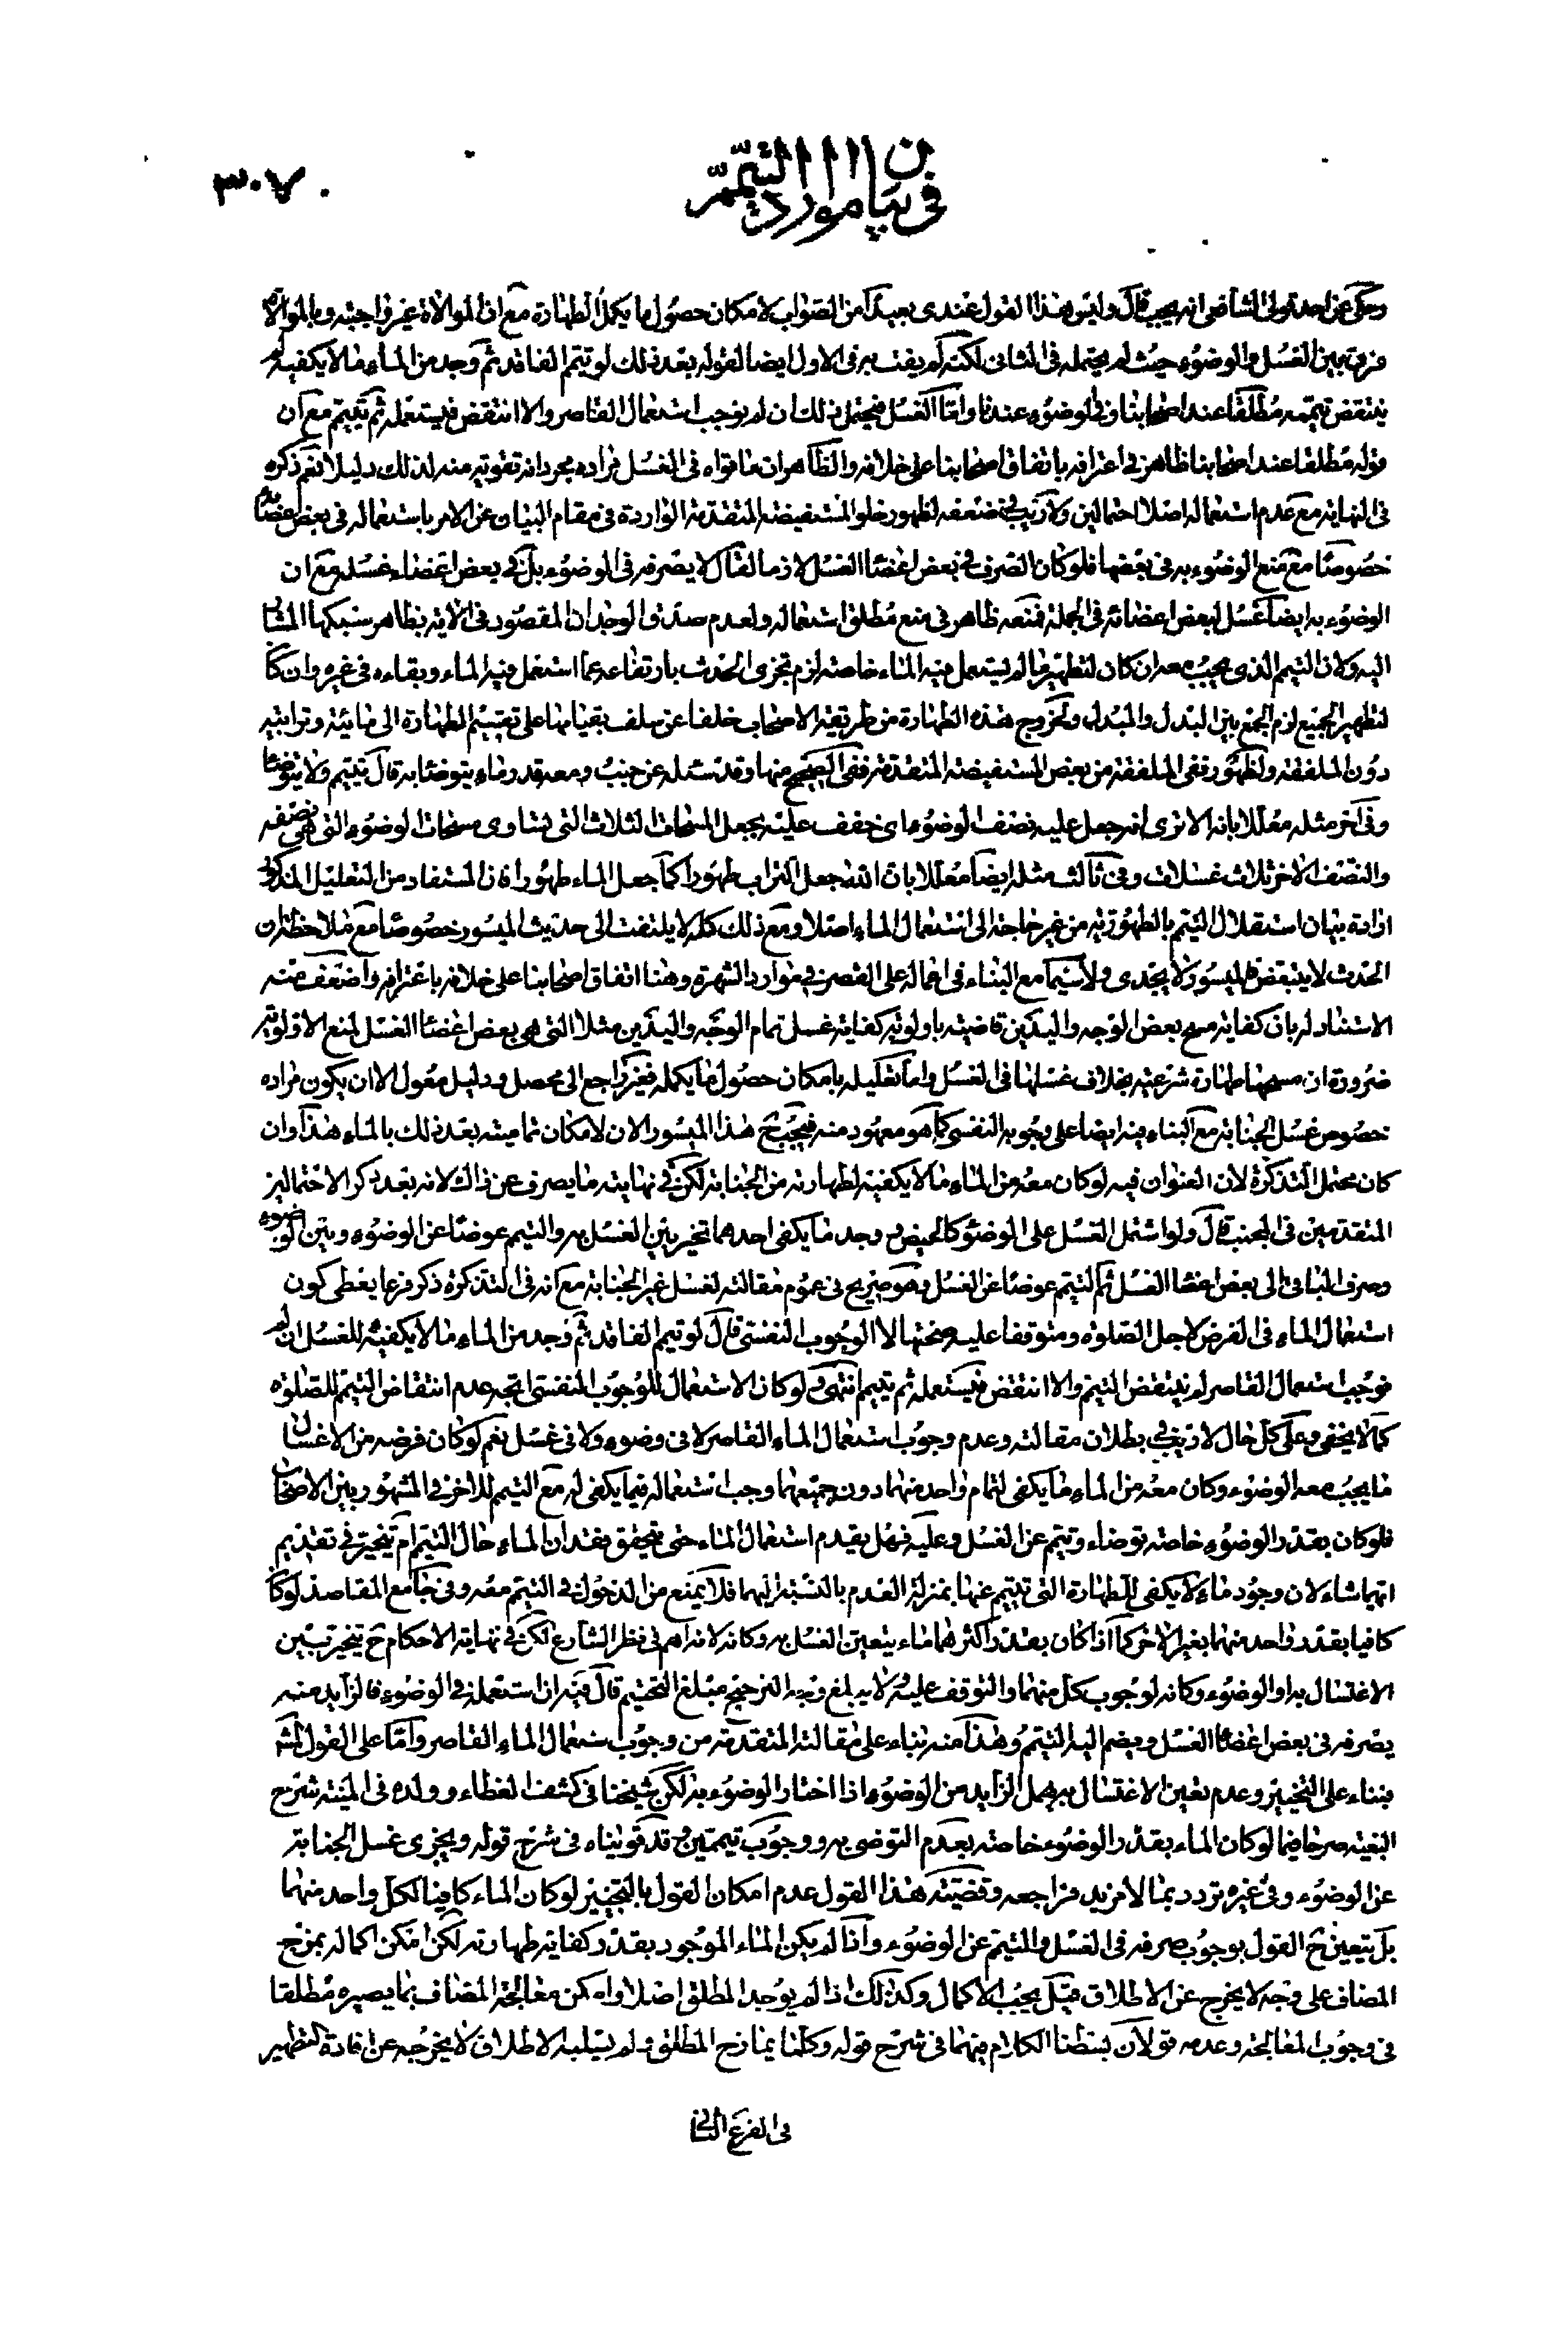 في بيان موارد التيمّم
٣٠٧
وحكى عن احد قولي الشافعي انه يجب قال وليس هذا القول عندى بعيدا من الصواب لامكان حصول ما يكمل الطهارة مع ان الموالاة غير واجبة وبالموالاة
فرق بين الغسل والوضوء حيث لم يحتمله في الثاني لكنه لم يفت به في الاول ايضا لقوله بعد ذلك لو تيمم الفاقد ثم وجد من الماء ما لا يكفيه لم
ينتقض تيممه مطلقا عند اصحابنا وفي الوضوء عندنا واما الغسل فيحتمل ذلك ان لم نوجب استعمال القاصر والا انتقض فيستعمله ثم تيمم مع ان
قوله مطلقا عند اصحابنا ظاهر في اعترافه باتفاق اصحابنا على خلافه والظاهر ان ما قواه في الغسل مراده مجرد انه تقوية منه لذلك دليلا نعم ذكره
في النهاية مع عدم استعماله اصلا احتمالين ولا ريب في ضعفه لظهور خلو المستفيضة المتقدمة الواردة في مقام البيان عن الامر باستعماله في بعض اعضائه
خصوصا مع منع الوضوء به في بعضها فلو كان الصرف في بعض اعضا الغسل لازما لقال لا يصرفه في الوضوء بل في بعض اعضاء غسله مع ان
الوضوء به ايضا غسل لبعض اعضائه في الجملة فمنعه ظاهر في منع مطلق استعماله ولعدم صدق الوجدان المقصود في الاية بظاهر سبكها المشار
اليه ولان التيمم الذى يجب معه ان كان لتطهير ما لم يستعمل فيه الماء خاصة لزم تجزى الحدث بارتفاعه عما استعمل فيه الماء وبقاءه في غيره وان كان
لتطهير الجميع لزم الجمع بين البدل والمبدل ولخروج هذه الطهارة من طريقة الاصحاب خلفا عن سلف بقيامها على تقسيم الطهارة الى مائية وترابية
دون الملفقة ولظهور نفى الملفقة من بعض المستفيضة المتقدمة ففى الصحيح منها وقد سئله عن جنب ومعه قدر ماء يتوضا به قال يتيمم ولا يتوضا
وفي اخر مثله معللا بانه الا ترى انه جعل عليه نصف الوضوء اى خفف عليه بجعل المسحات الثلاث التى تساوى مسحات الوضوء التى هى نصفه
والنصف الاخر ثلاث غسلات وفي ثالث مثله ايضا معللا بان الله جعل التراب طهورا كما جعل الماء طهورا فان المستفاد من التعليل المذكور
ارادة بيان استقلال التيمم بالطهورية من غير حاجة الى استعمال الماء اصلا ومع ذلك كله لا يلتفت الى حديث الميسور خصوصا مع ملاحظة ان
الحدث لا يتبعض فالميسور لا يجدى ولا سيما مع البناء في اعماله على القصر في موارد الشهرة وهنا اتفاق اصحابنا على خلافه باعترافه واضعف منه
الاستناد له بان كفاية مسح بعض الوجه واليدين قاضية باولوية كفاية غسل تمام الوجه واليدين مثلا التى هى بعض اعضا الغسل لمنع الاولوية
ضرورة ان مسحها طهارة شرعية بخلاف غسلها في الغسل واما تعليله بامكان حصول ما يكمله فغير راجع الى محصل ودليل معول الا ان يكون مراده
خصوص غسل الجنابة مع البناء منه ايضا على وجوبه النفسى كما هو معهود منه فيجب ح هذا الميسور الان لامكان تماميته بعد ذلك بالماء هذا وان
كان محتمل التذكرة لان العنوان فيه لو كان معه من الماء ما لا يكفيه لطهارته من الجنابة لكن في نهايته ما يصرف عن ذلك لانه بعد ذكر الاحتمالين
المتقدمين في الجنب قال ولو اشتمل الغسل على الوضوء كالحيض ووجد ما يكفى احدهما تخير بين الغسل به والتيمم عوضا عن الوضوء وبين الوضوء
وصرف الباقي الى بعض اعضا الغسل ثم التيمم عوضا عن الغسل وهو صريح في عموم مقالته لغسل غير الجنابة مع انه في التذكرة ذكر فرعا يعطى كون
استعمال الماء في الفرض لاجل الصلوة ومتوقفا عليه صحتها لا الوجوب النفسى قال لو تيمم الفاقد ثم وجد من الماء ما لا يكفيه للغسل ان لم
نوجب استعمال القاصر لم ينتقض التيمم والا انتقض فيستعمله ثم تيمم انتهى ولو كان الاستعمال للوجوب النفسى اتجه عدم انتقاض التيمم للصلوة
كما لا يخفى وعلى كل حال لا ريب في بطلان مقالته وعدم وجوب استعمال الماء القاصر لا في وضوء ولا في غسل نعم لو كان فرضه من الاغسال
ما يجب معه الوضوء وكان معه من الماء ما يكفى لتمام واحد منهما دون جميعهما وجب استعماله فيما يكفى له مع التيمم للاخر في المشهور بين الاصحاب
فلو كان بقدر الوضوء خاصة توضاء وتيمم عن الغسل وعليه فهل يقدم استعمال الماء حتى يتحقق فقدان الماء حال التيمم ام يتخير في تقديم
ايهما شاء لان وجود ماء لا يكفى للطهارة التى تيمم عنها بمنزلة العدم بالنسبة اليهما فلا يمنع من الدخول في التيمم معه وفي جامع المقاصد لو كان
كافيا بقدر واحد منهما بغير الاخر كما اذا كان بقدر اكثرهما ماء يتعين الغسل به وكانه لانه اهم في نظر الشارع لكن في نهاية الاحكام ح يتخير بين
الاغتسال به او الوضوء وكانه لوجوب كل منهما والتوقف عليه لا يبلغ وجه الترجيح مبلغ التحتيم قال فيه ان استعمله في الوضوء فالزايد منه
يصرفه في بعض اعضاء الغسل ويضم اليه التيمم وهذا منه بناء على مقالته المتقدمة من وجوب استعمال الماء القاصر واما على القول المشهور
فبناء على التخيير وعدم تعين الاغتسال به يهمل الزايد من الوضوء اذا اختار الوضوء به لكن شيخنا في كشف الغطاء وولده في المنية شرح
البغية صرحا فيما لو كان الماء بقدر الوضوء خاصة بعدم التوضى به ووجوب تيممين وقد قويناه في شرح قوله ويجزى غسل الجنابة
عن الوضوء وفي غيره تردد بما لا مزيد فراجعه وقضيته هذا القول عدم امكان القول بالتخيير لو كان الماء كافيا لكل واحد منهما
بل يتعين ح القول بوجوب صرفه في الغسل والتيمم عن الوضوء واذا لم يكن الماء الموجود بقدر كفاية طهارته لكن امكن اكماله بمزج
المضاف على وجه لا يخرج عن الاطلاق قيل يجب الاكمال وكذلك اذا لم يوجد المطلق اصلا وامكن معالجة المضاف بما يصيره مطلقا
في وجوب المعالجة وعدمه قولان بسطنا الكلام فيهما في شرح قوله وكلما يمازج المطلق ولم يسلبه الاطلاق لا يخرجه عن افادة التطهير
في الفرع الثاني